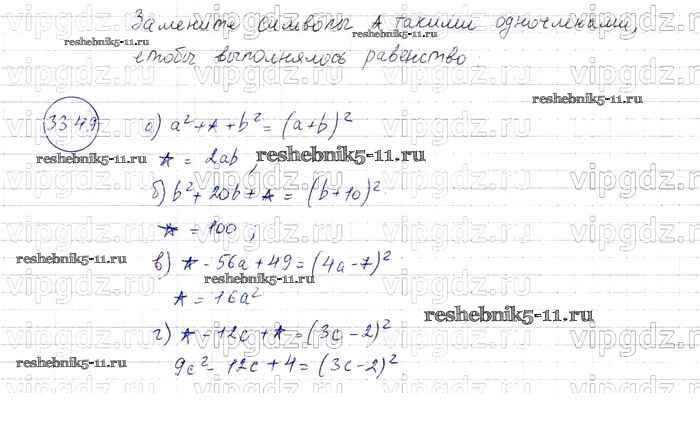 Замените символы ★ такими одночленами,
чтобы выполнялось равенство.
reshebnik5-11.ru
reshebnik5-11.ru
33.49 а) a² + ★ + b² = (a+b)²
reshebnik5-11.ru
★ = 2ab ;
reshebnik5-11.ru
б) b² + 20b + ★ = (b+10)²
★ = 100 ;
reshebnik5-11.ru
в) ★ - 56a + 49 = (4a - 7)²
reshebnik5-11.ru
★ = 16a²
reshebnik5-11.ru
г) ★ - 12c + ★ = (3c - 2)²
reshebnik5-11.ru
9c² - 12c + 4 = (3c - 2)²
vipgdz.ru